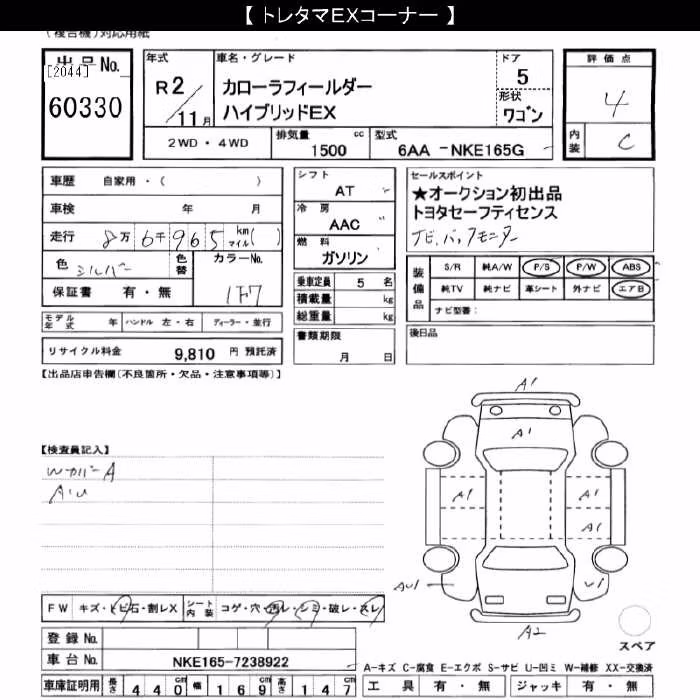 【 トレタマEXコーナー 】
(複合機)対応用紙
出品No.
[2044]
60330
年式
R2/11月
車名・グレード
カローラフィールダー
ハイブリッドEX
ドア
5
形状
ワゴン
評価点
4
内装
C
2WD・4WD
排気量 cc
1500
型式
6AA -NKE165G
車歴 自家用・( )
車検 年 月
走行 8万6千965 km マイル( )
色 シルバー
色替
カラーNo.
1F7
保証書 有・無
モデル年式 年 ハンドル 左・右 ディーラー・並行
リサイクル料金 9,810 円 預託済
シフト
AT
冷房
AAC
燃料
ガソリン
乗車定員 5 名
積載量 kg
総重量 kg
書類期限
月 日
セールスポイント
★オークション初出品
トヨタセーフティセンス
ナビ.バックモニター
装備品
S/R 純A/W P/S P/W ABS
純TV 純ナビ 革シート 外ナビ エアB
ナビ型番:
後日品
【出品店申告欄(不良箇所・欠品・注意事項等)】
【検査員記入】
W-カバーA
A・U
A1
A1
A1
A1
A1
AU1
U1
A2
スペア
FW キズ・トビ石・割レX シート内装 コゲ・穴・汚レ・シミ・破レ・スレ
登録No.
車台No. NKE165-7238922
車庫証明用 長さ 440cm 幅 169cm 高さ 147cm
A-キズ C-腐食 E-エクボ S-サビ U-凹ミ W-補修 XX-交換済
工具 有・無 ジャッキ 有・無